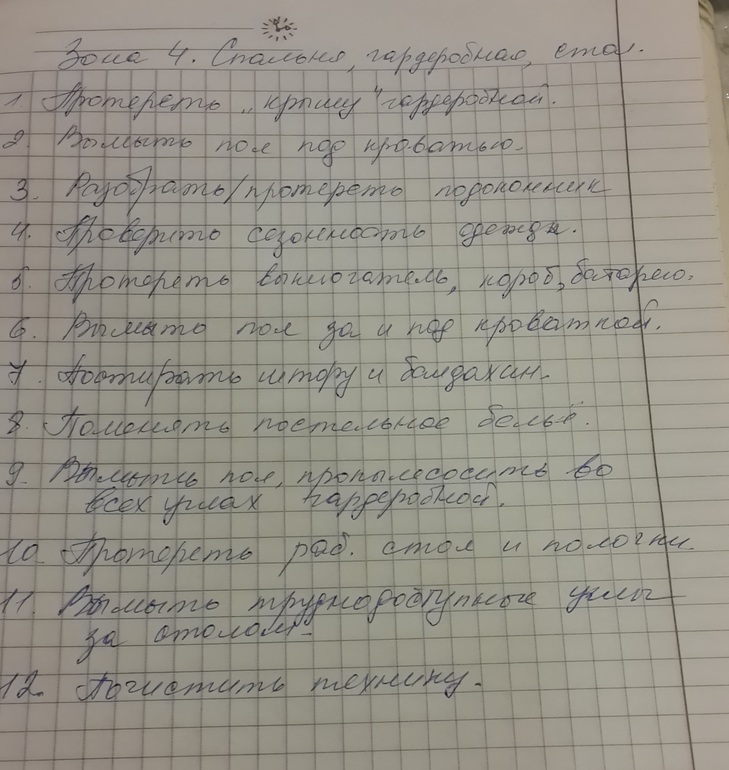 Зона 4. Спальня, гардеробная, стол.
1. Протереть „крышу" гардеробной.
2. Вымыть пол под кроватью.
3. Разобрать/протереть подоконник
4. Проверить сезонность одежды.
5. Протереть выключатель, короб, батарею.
6. Вымыть пол за и под кроваткой.
7. Постирать штору и балдахин.
8. Поменять постельное бельё.
9. Вымыть пол, пропылесосить во
всех углах гардеробной.
10. Протереть раб. стол и полочки.
11. Вымыть труднодоступные углы
за столом.
12. Почистить технику.